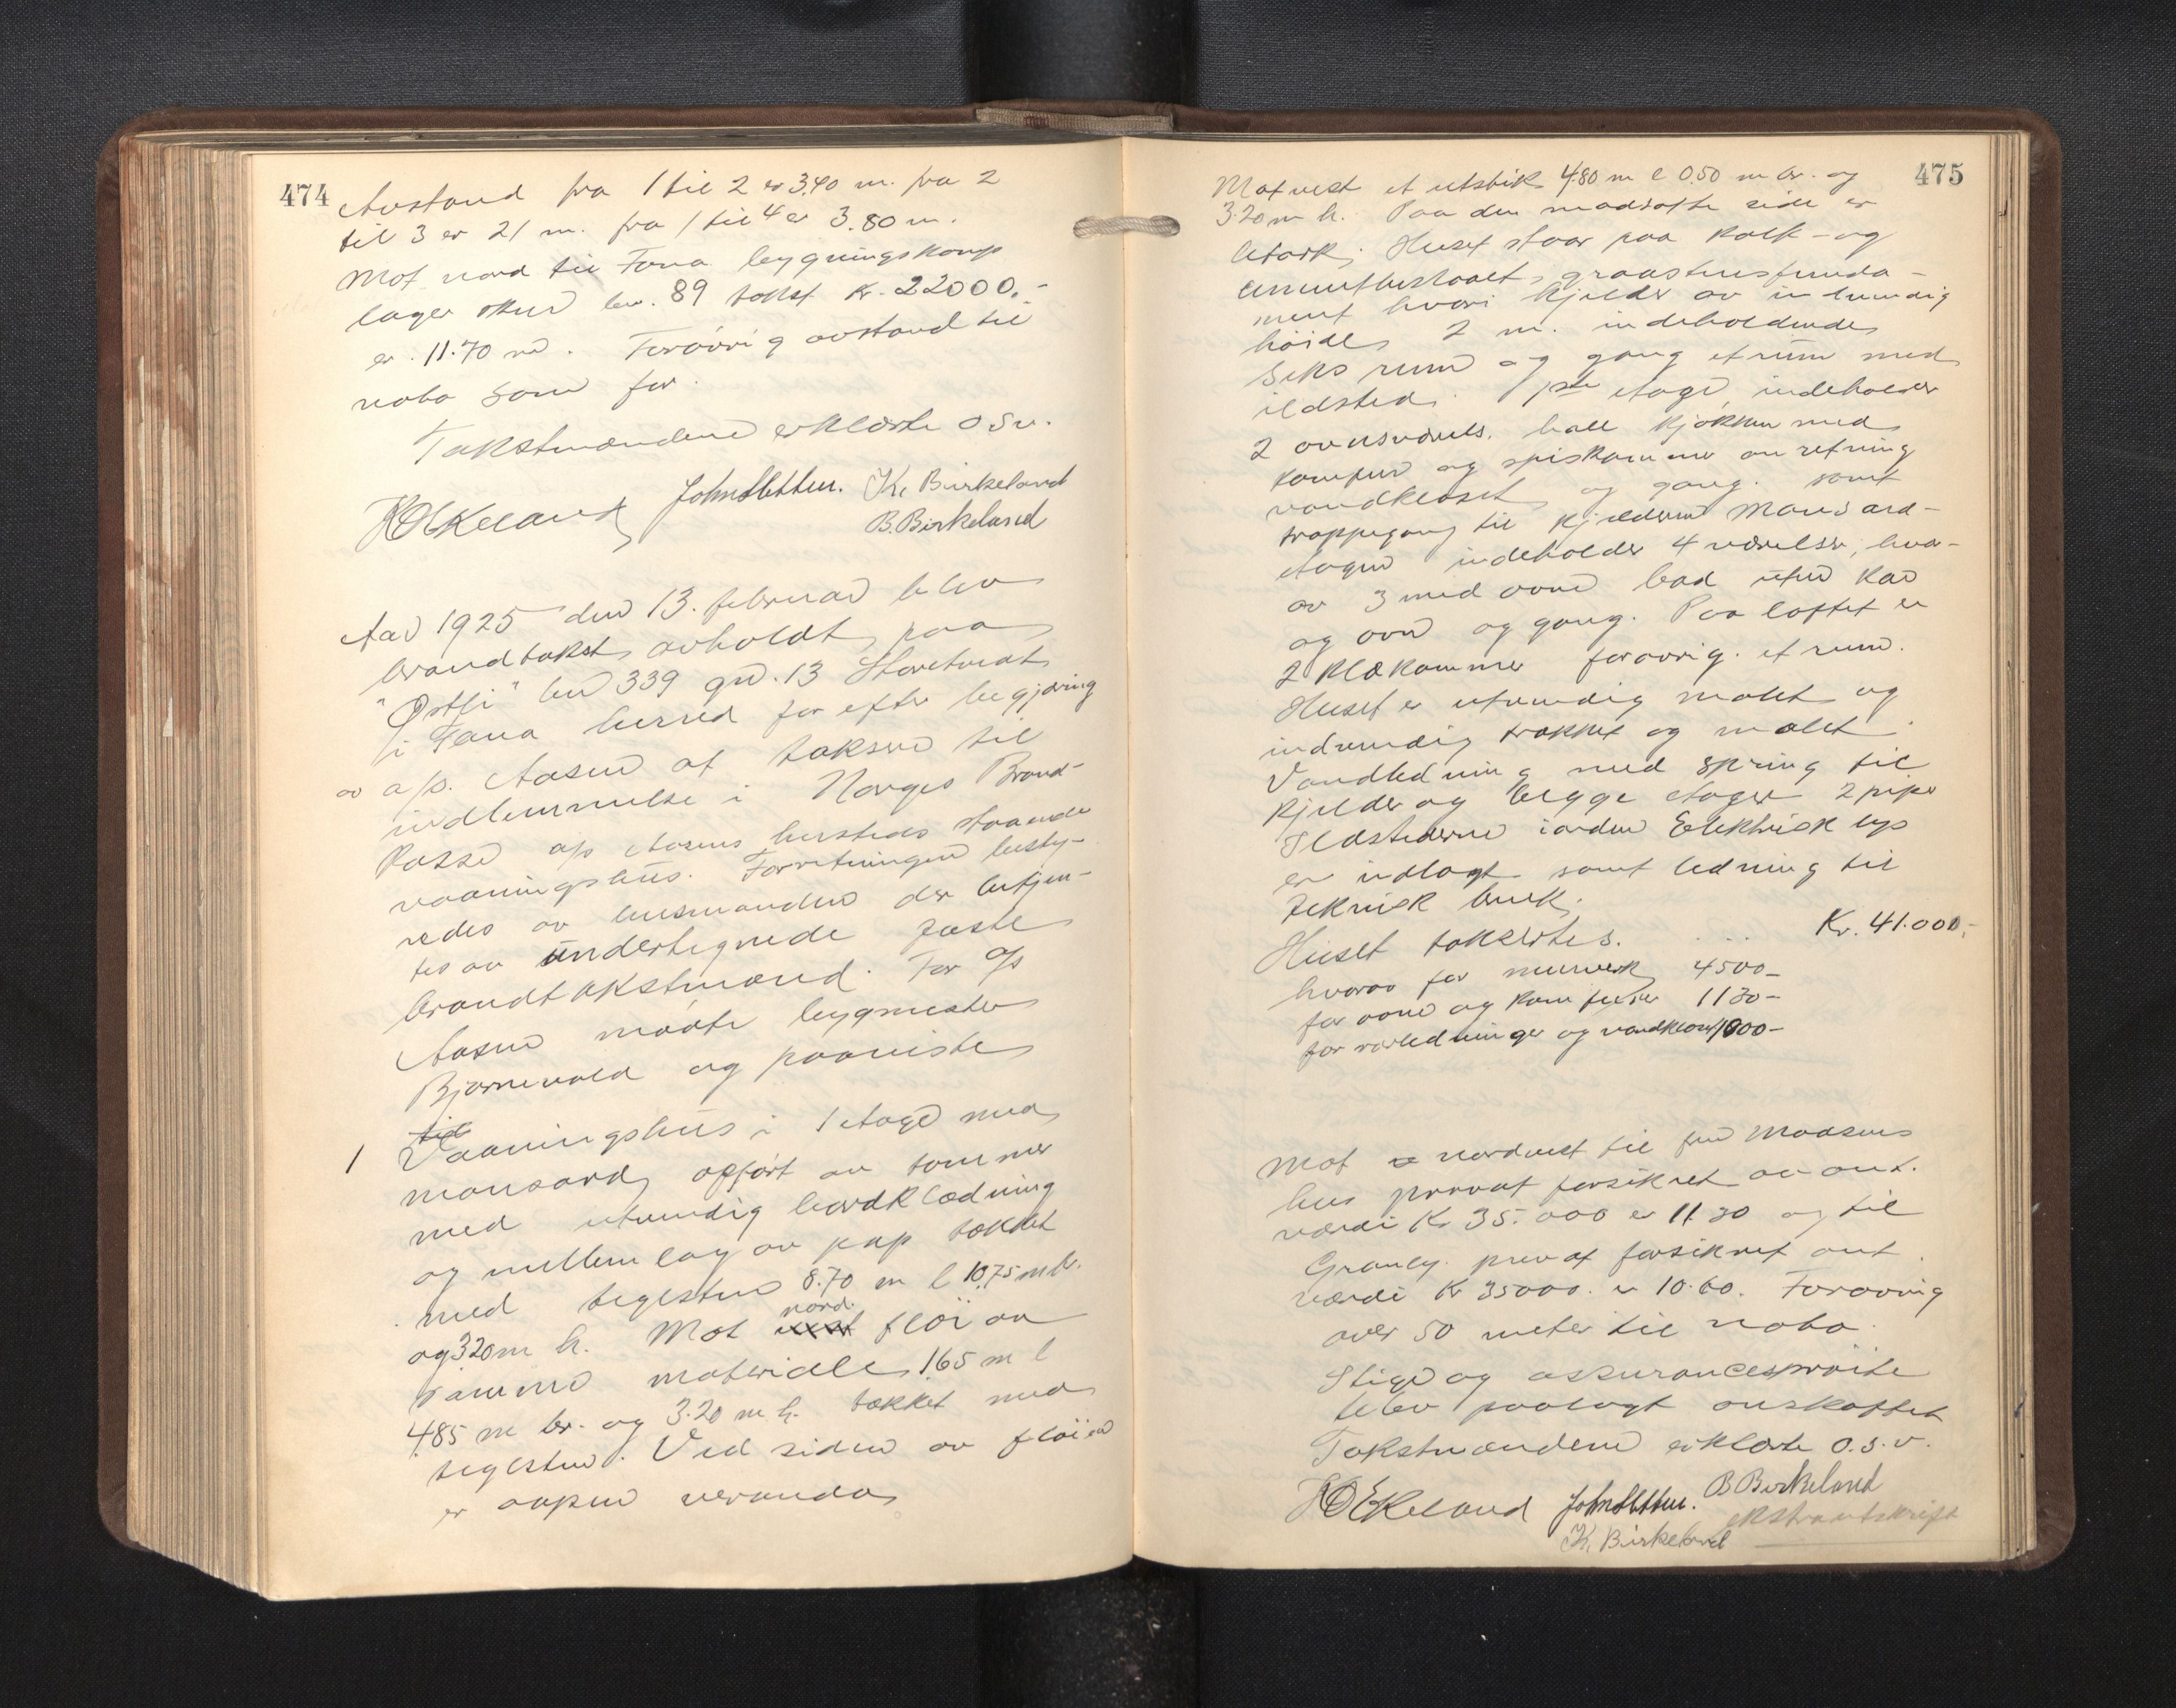 474
Avstand fra 1 til 2 er 3.40 m. fra 2
til 3 er 21 m. fra 1 til 4 er 3.80 m.
Mot nord til Fana bygningskomp
lager skur bn. 89 takst Kr. 22000.-
er 11.70 m. Forøvrig avstand til
nabo som før.
Takstmændene erklærte osv.
HOEkeland JohnSletten. K. Birkeland
B. Birkeland
Aar 1925 den 13. februar blev
brandtakst avholdt paa
"Østli" bn 339 gn. 13 Storetveit
i Fana herred for efter begjæring
av a/s. Aasen at taksere til
indlemmelse i Norges Brand-
kasse a/s Aasens hersteds staaende
vaaningshus. Forretningen besty-
redes av lensmanden der betjen-
tes av undertegnede faste
brandtakstmænd. For a/s
Aasen møtte bygmester
Bjørnevold og paaviste
1 Vaaningshus i 1 etage med
mansard, opført av tømmer
med utvendig bordklædning
og mellemlag av pap tækket
med teglsten 8.70 m l 10.75 m br.
og 3.20 m h. Mot nord. fløi av
samme materiale 1.65 m l
4.85 m br. og 3.20 m h. tækket med
teglsten. Ved siden av fløien
er aapen veranda
475
Mot vest et utstik 4.80 m l 0.50 m br. og
3.20 m h. Paa den modsatte side er
et ark. Huset staar paa kalk- og
cementbestaaet graastensfunda-
ment hvori kjelder av indvendig
høide 2 m. indeholdende
seks rum og gang et rum med
ildsted. 1ste etage indeholder
2 ovnsværels. hall kjøkken med
komfur og spiskammer anretning
vandklosset og gang. samt
trappegang til kjelderen Mansard-
etagen indeholder 4 værelser, hvor-
av 3 med ovne bad uten kar
og ovn og gang. Paa loftet er
2 klækammer forøvrig et rum.
Huset er utvendig malet og
indvendig trækket og malet.
Vandledning med spring til
kjelder og begge etager 2 piper
Ildstederne i orden Elektrisk lys
er indlagt samt ledning til
teknisk bruk.
Huset takseres. . . . Kr. 41.000.-
hvorav for murverk 4500-
for ovne og komfurer 1130-
for rørledninger og vandklosset 1900-
Mot nordvest til fru Monsens
hus privat forsikret av ant.
værdi Kr 35.000 er 11.30 og til
Granly privat forsikret ant.
værdi Kr 35000. er 10.60. Forøvrig
over 50 meter til nabo.
Stige og assurancesprøite
blev paalagt anskaffet
Takstmændene erklærte o.s.v.
HOEkeland JohnSletten. B Birkeland
K. Birkeland ekstrautskrift